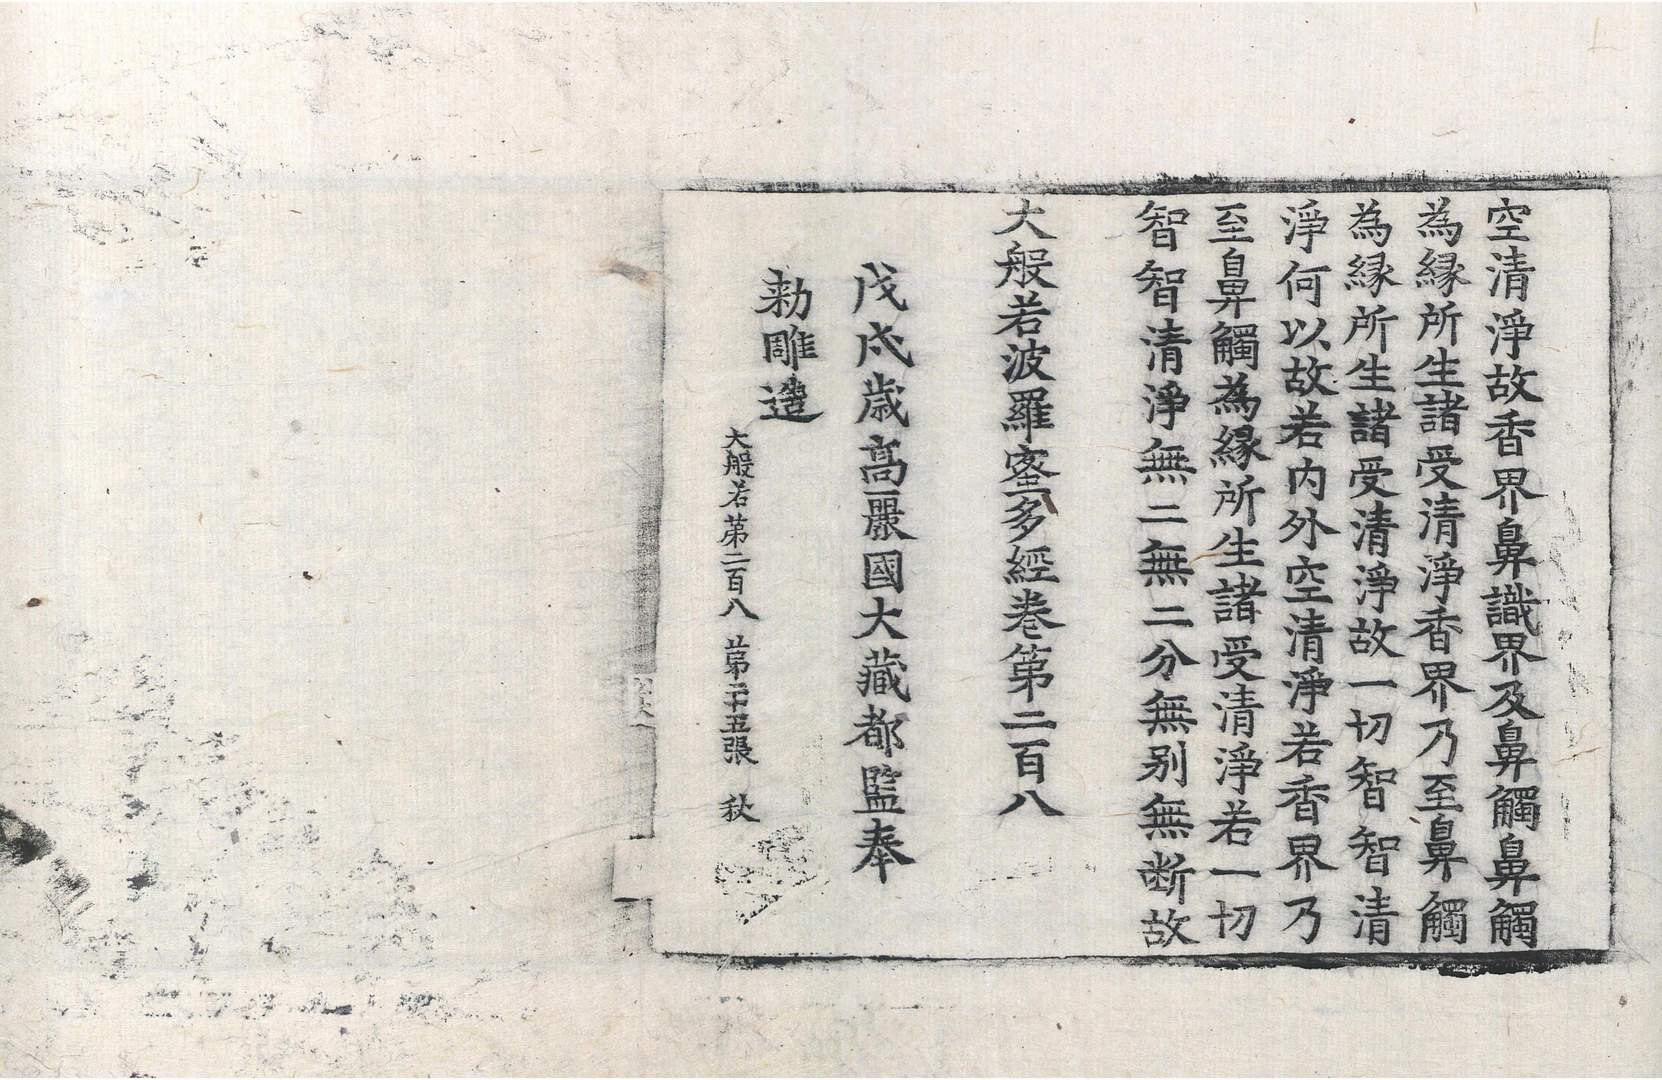 空清淨故香界鼻識界及鼻觸鼻觸
為縁所生諸受清淨香界乃至鼻觸
為縁所生諸受清淨故一切智智清
淨何以故若内外空清淨若香界乃
至鼻觸為縁所生諸受清淨若一切
智智清淨無二無二分無別無断故
大般若波羅蜜多經卷第二百八
戊戌歲高麗國大藏都監奉
勅雕造
大般若第二百八 第二十五張 秋